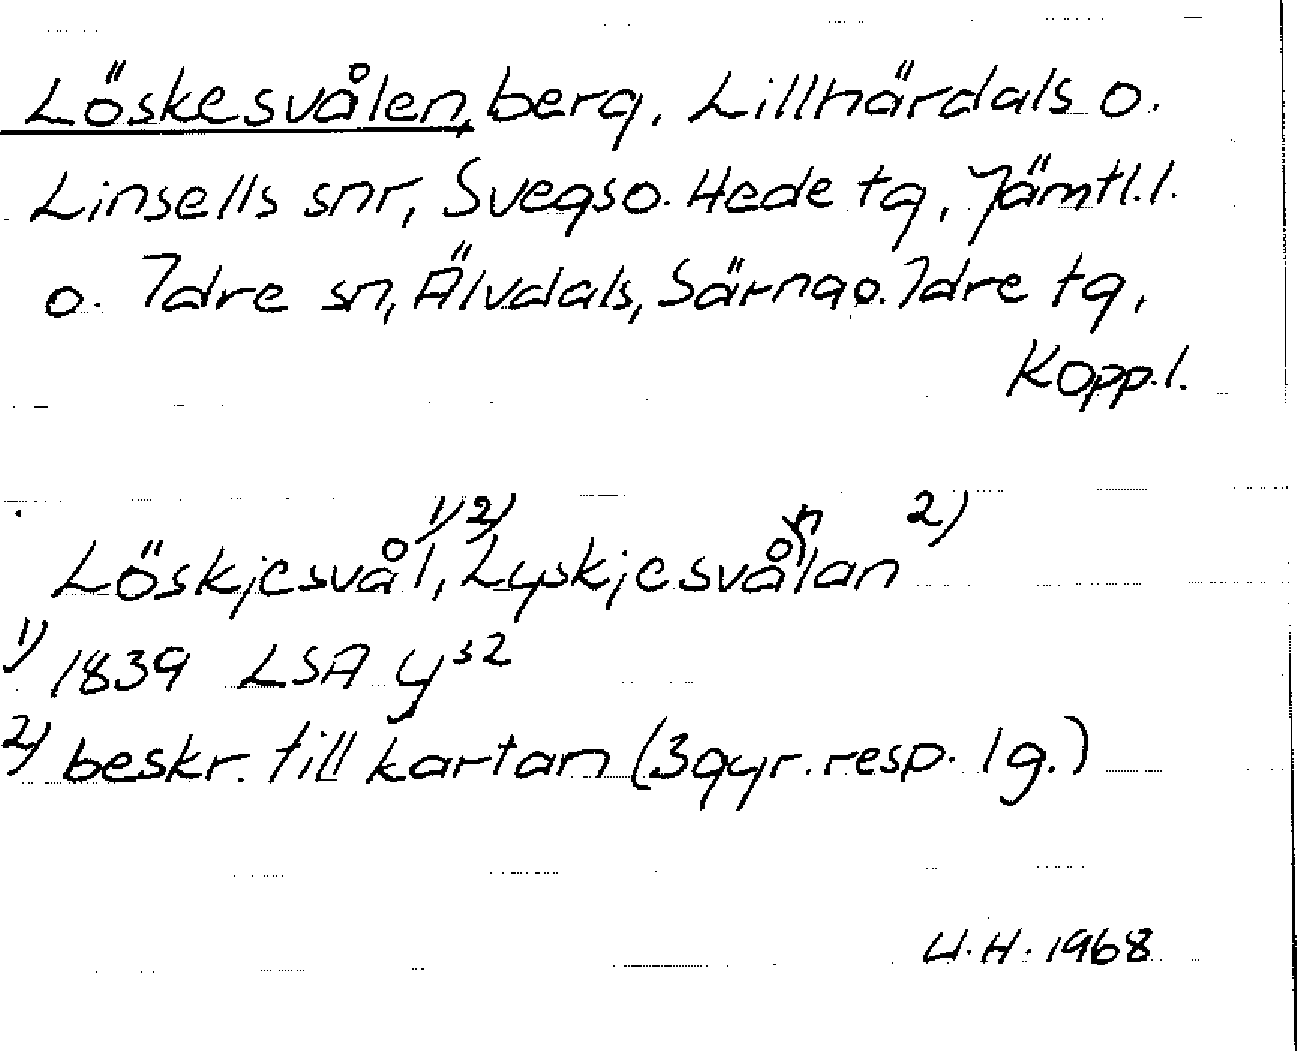 Löskesvålen, berg, Lillhärdals o.
Linsells snr, Svegs o. Hede tg, Jämtl. l.
o. Idre sn, Älvdals, Särna o. Idre tg,
Kopp. l.
Löskjesvål, 1) 2) Lyskjesvåln an 2)
1) 1839 LSA y s2
2) beskr. till kartan (3 ggr. resp. 1 g.)
U.H. 1968